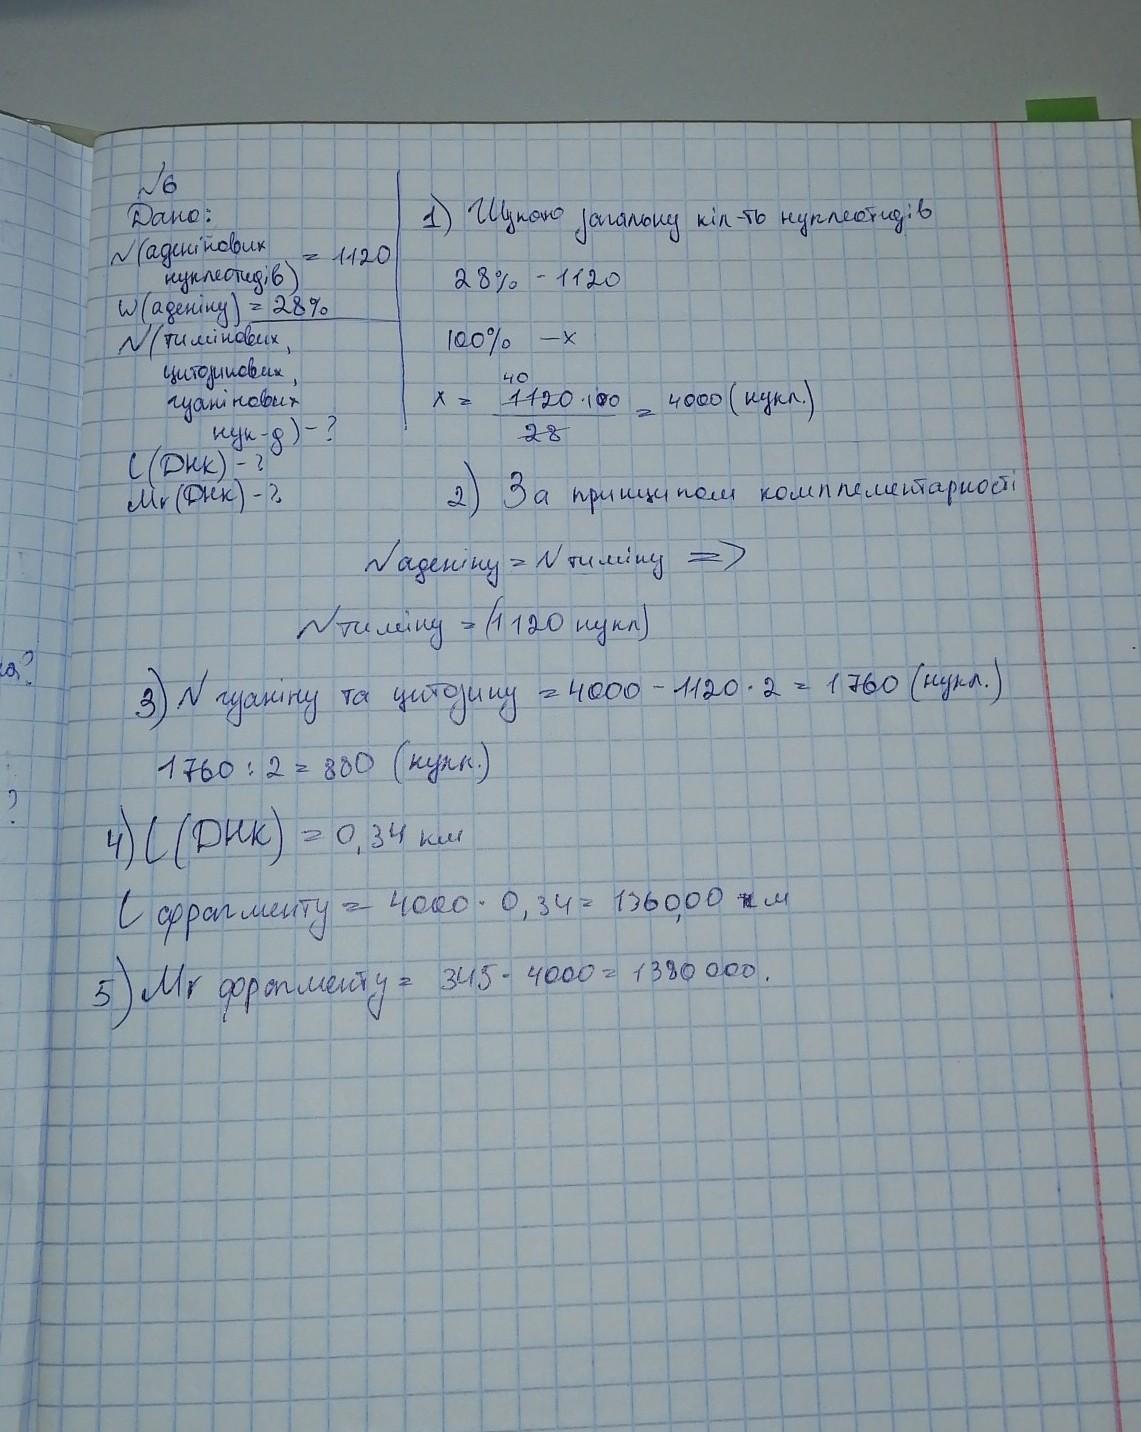 №6
Дано:
N(аденінових
нуклеотидів) = 1120
W(аденіну) = 28%
N(тимінових,
цитозинових,
гуанінових
нук-д) - ?
L(ДНК) - ?
Mr(ДНК) - ?
1) Шукаю загальну кіл-ть нуклеотидів
28% - 1120
100% - x
40
x = 1120·100 / 28 = 4000 (нукл.)
2) За принципом комплементарності
N аденіну = N тиміну =>
N тиміну = (1120 нукл)
3) N гуаніну та цитозину = 4000 - 1120·2 = 1760 (нукл.)
1760 : 2 = 880 (нукл.)
4) L (ДНК) = 0,34 нм
L фрагменту = 4000 · 0,34 = 1360,00 нм
5) Mr фрагменту = 345 · 4000 = 1380 000.
?